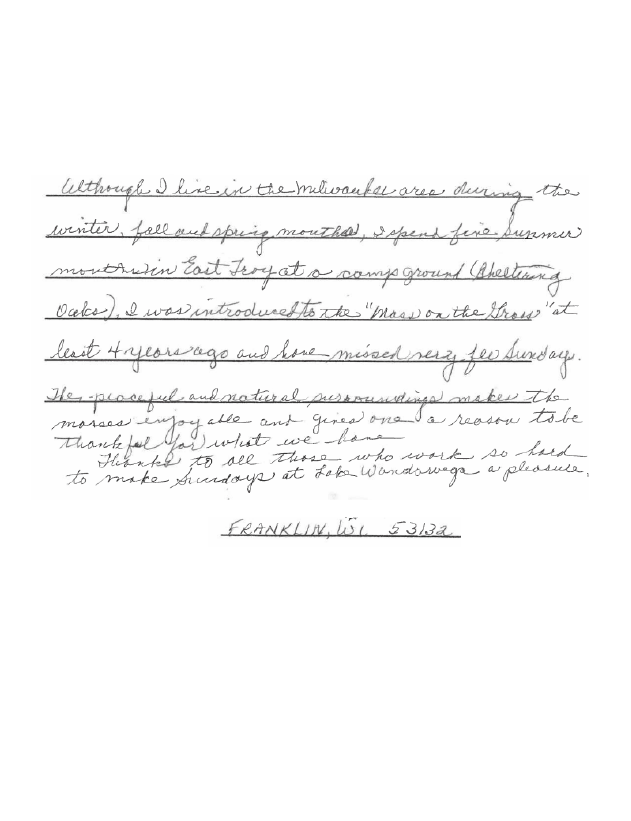 Although I live in the Milwaukee area during the
winter, fall and spring months, I spend five Summer
months in East Troy at a camp ground (Sheltering
Oaks). I was introduced to the "Mass on the Grass" at
least 4 years ago and have missed very few Sundays.
The peaceful and natural surroundings makes the
masses enjoyable and gives one a reason to be
thankful for what we have
Thanks to all those who work so hard
to make Sundays at Lake Wandawega a pleasure.
FRANKLIN, WI. 53132